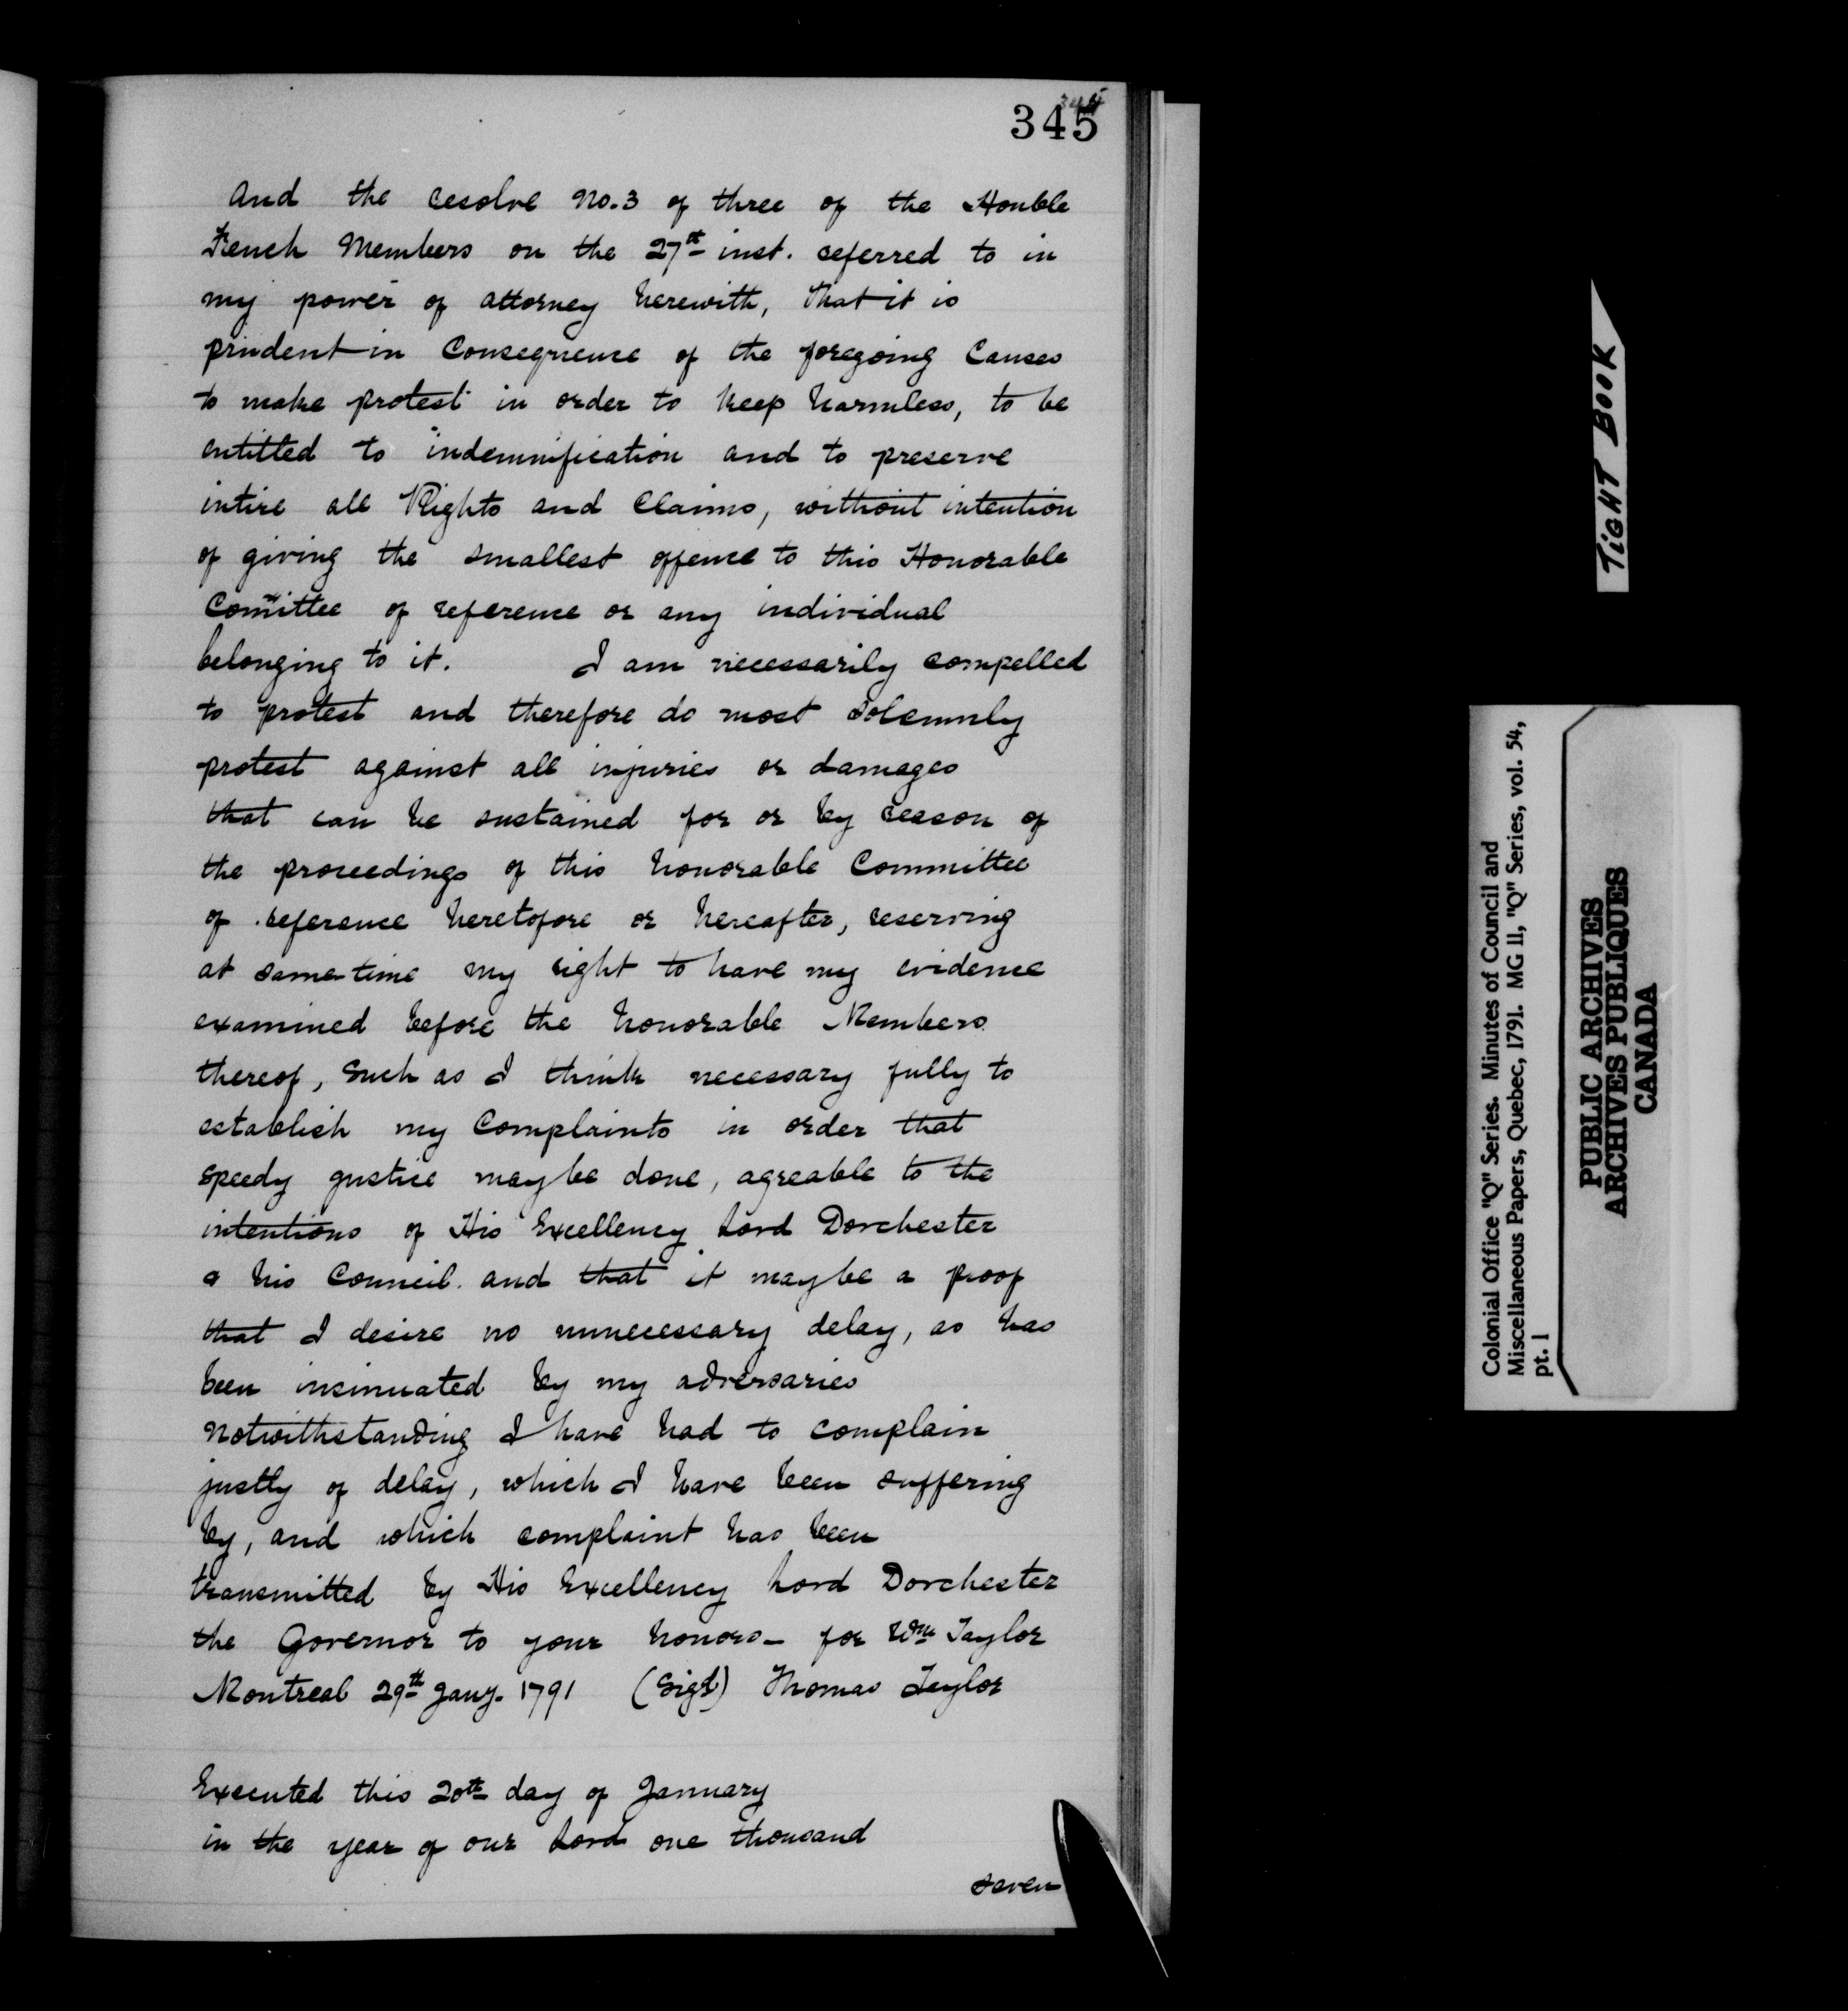 345
And the resolve No. 3 of three of the Honble
French Members on the 27th inst. referred to in
my power of attorney herewith, that it is
prudent in Consequence of the foregoing Causes
to make protest in order to keep harmless, to be
entitled to indemnification and to preserve
intire all Rights and Claims, without intention
of giving the smallest offence to this Honorable
Comittee of reference or any individual
belonging to it. I am necessarily compelled
to protest and therefore do most solemnly
protest against all injuries or damages
that can be sustained for or by reason of
the proceedings of this honorable Committee
of reference heretofore or hereafter, reserving
at same time my right to have my evidence
examined before the honorable Members
thereof, Such as I think necessary fully to
establish my Complaints in order that
speedy justice may be done, agreable to the
intentions of His Excellency Lord Dorchester
& his Council. and that it may be a proof
that I desire no unnecessary delay, as has
been insinuated by my adversaries
Notwithstanding I have had to complain
justly of delay, which I have been suffering
by, and which complaint has been
transmitted by His Excellency Lord Dorchester
the Governor to your honors— for Wm Taylor
Montreal 29th Jany. 1791 (Sigd) Thomas Taylor
Executed this 20th day of January
in the year of our Lord one thousand
seven
TIGHT BOOK
Colonial Office "Q" Series. Minutes of Council and
Miscellaneous Papers, Quebec, 1791. MG 11, "Q" Series, vol. 54,
pt. 1
PUBLIC ARCHIVES
ARCHIVES PUBLIQUES
CANADA